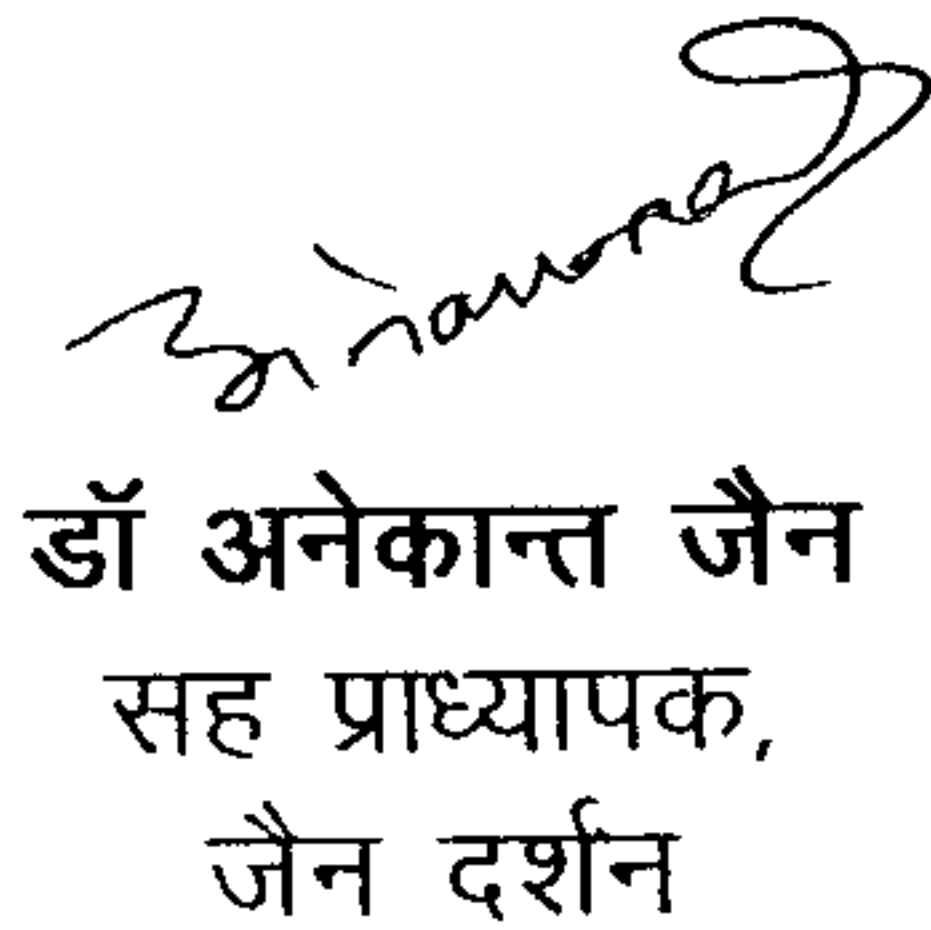 डॉ अनेकान्त जैन
सह प्राध्यापक,
जैन दर्शन